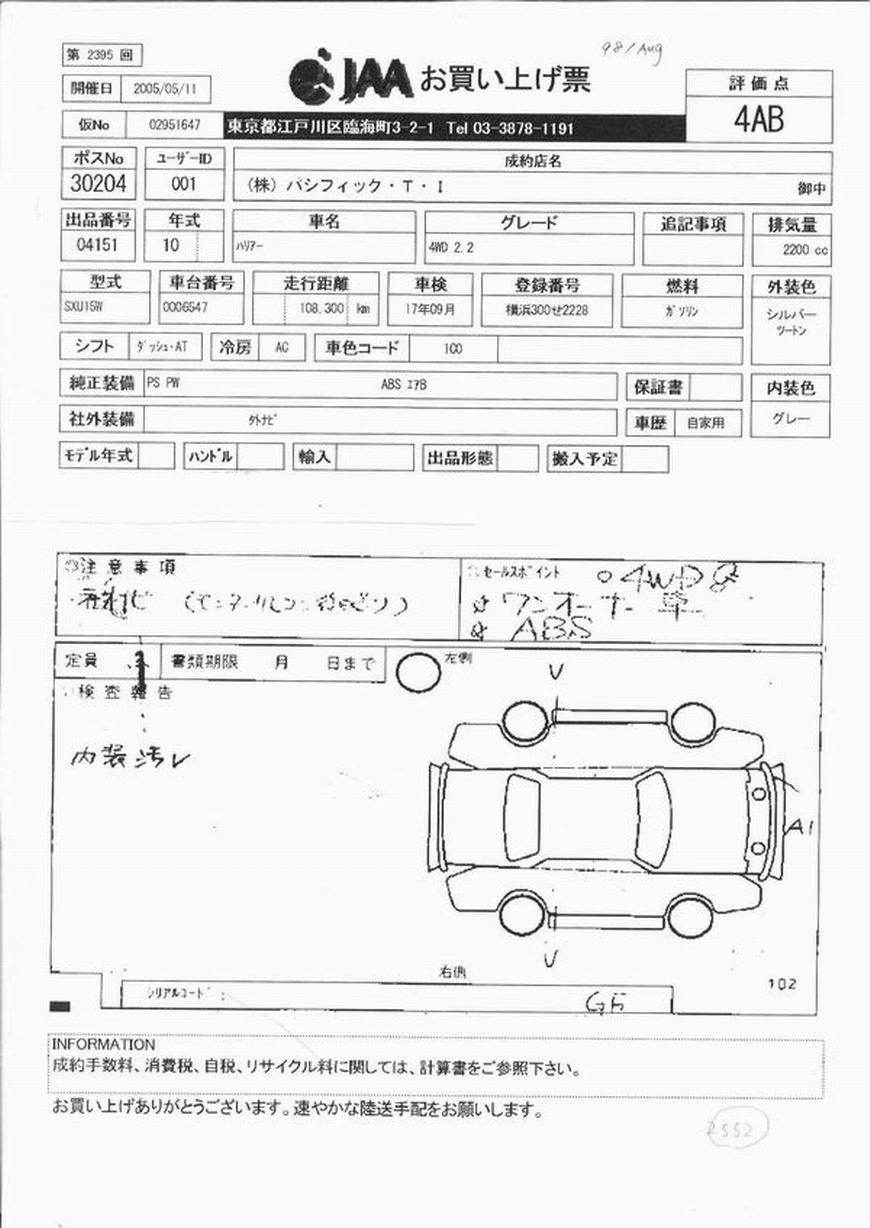 第 2395 回
98/Aug
JAA お買い上げ票
開催日 2005/05/11
評価点
4AB
仮No 02951647
東京都江戸川区臨海町3-2-1 Tel 03-3878-1191
ポスNo ユーザーID 成約店名
30204 001 (株) パシフィック・T・I 御中
出品番号 年式 車名 グレード 追記事項 排気量
04151 10 ハリアー 4WD 2.2 2200 cc
型式 車台番号 走行距離 車検 登録番号 燃料 外装色
SXU15W 0006547 108,300 km 17年09月 横浜300せ2228 ガソリン シルバー
ツートン
シフト ダッシュ・AT 冷房 AC 車色コード 1C0
純正装備 PS PW ABS エアB 保証書 内装色
社外装備 外ナビ 車歴 自家用 グレー
モデル年式 ハンドル 輸入 出品形態 搬入予定
注意事項
セールスポイント
4WD
ワンオーナー車
ABS
定員 書類期限 月 日まで
左側
V
検査報告
内装汚レ
A1
V
右側
102
シリアルコード :
INFORMATION
成約手数料、消費税、自税、リサイクル料に関しては、計算書をご参照下さい。
お買い上げありがとうございます。速やかな陸送手配をお願いします。
2552